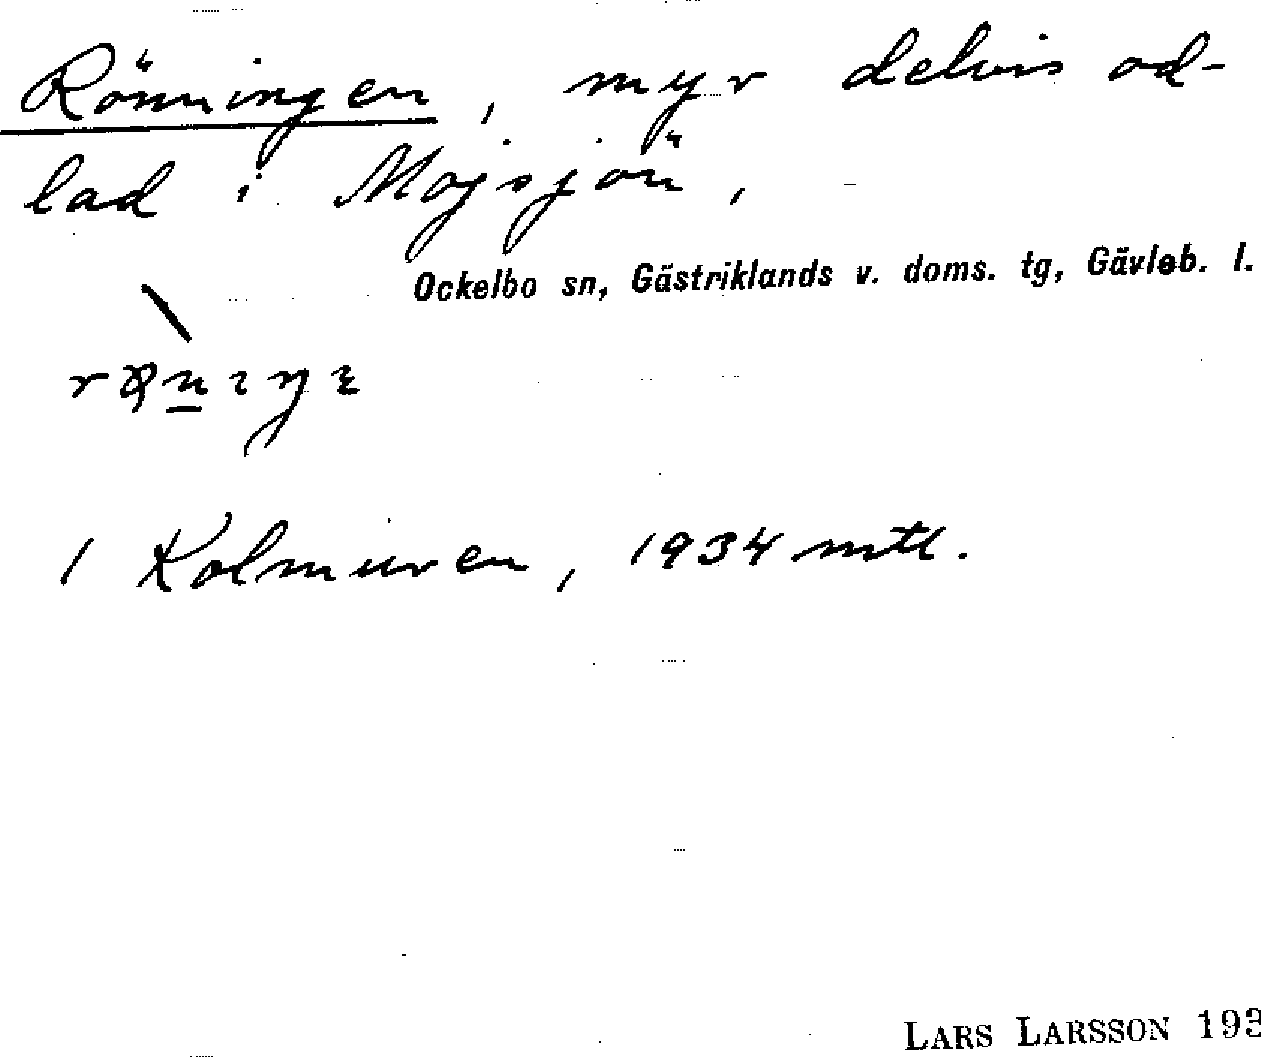 Rönningen, myr delvis od-
lad i Mojsjön,
Ockelbo sn, Gästriklands v. doms. tg, Gävleb. l.
1 Kolmuren, 1934 mtl.
LARS LARSSON 193